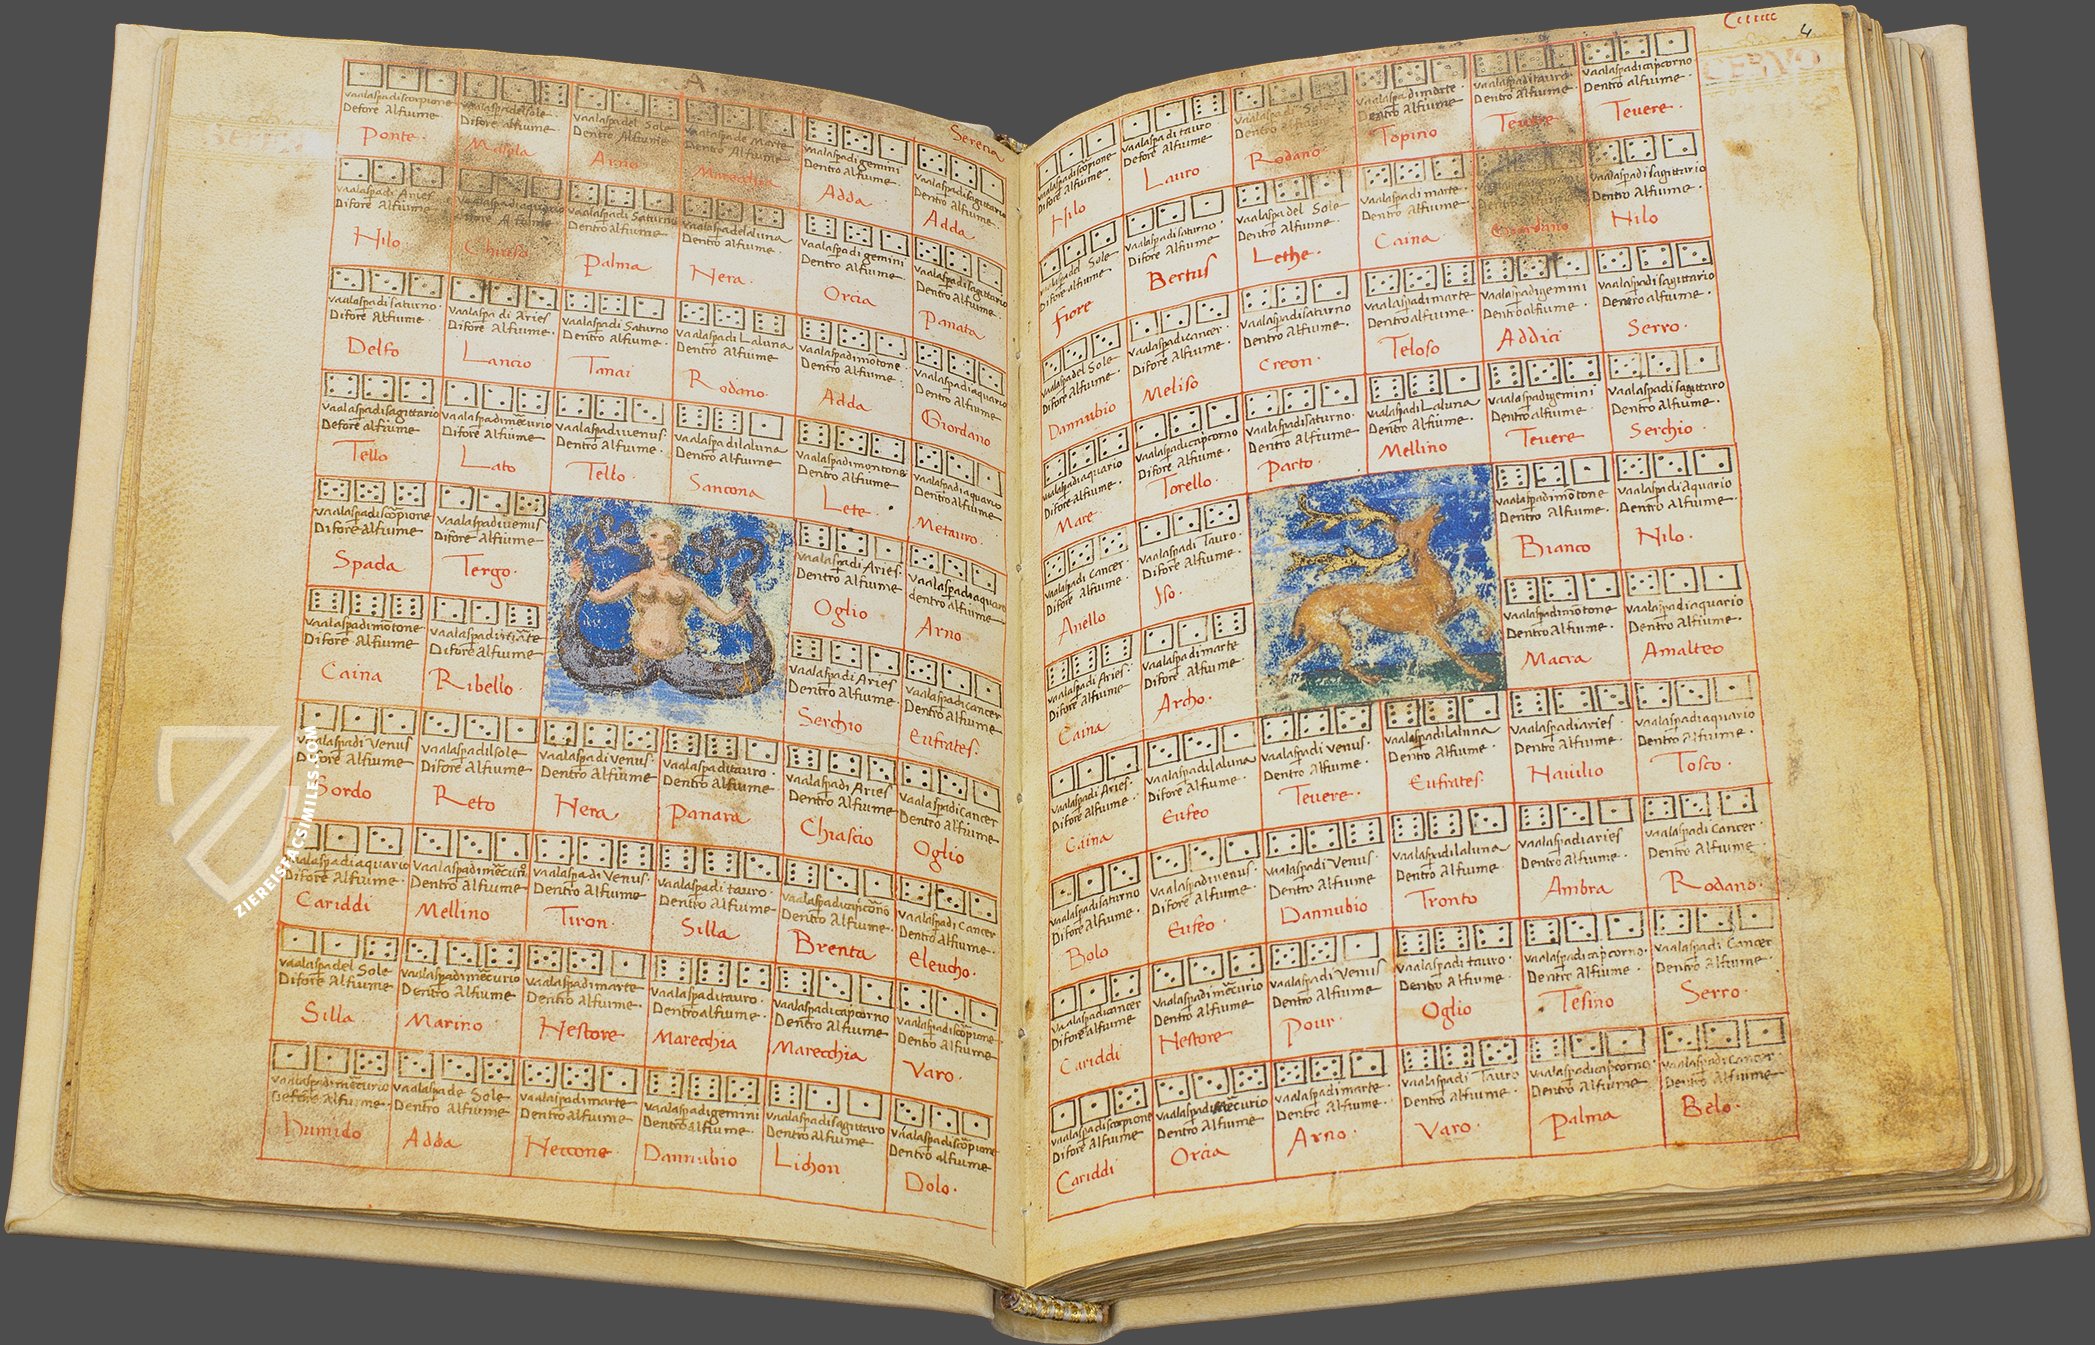 Serena
vaalaspadiscorpione
Defore Alfiume
Ponte.
vaalaspadelsole
Difore alfiume
vaalaspa del Sole
Dentro Alfiume
Arno
vaalaspade Marte
Dentro Alfiume
Marecchia
vaalaspadigemini
Dentro alfiume.
Adda
vaalaspadisagittario
Dentro alfiume.
Adda
vaalaspadi Aries
Difore Alfiume
Nilo
vaalaspadi Saturno
Dentro alfiume
Palma
vaalaspadelaluna
Dentro alfiume.
Nera.
vaalaspadi gemini
Dentro alfiume.
Orcia
vaalaspadisagittario
Dentro alfiume.
Panata
vaalaspadi saturno.
Difore Alfiume.
Delfo
vaalaspa di Aries
Difore Alfiume.
Lancio
vaalaspadi Saturno
Dentro alfiume.
Tanai
vaalaspadi Laluna
Dentro alfiume
Rodano.
vaalaspadimotone
Dentro alfiume.
Adda
vaalaspadiaquario
Dentro Alfiume
Giordano
vaalaspadisagittario
Defore alfiume
Tello
vaalaspadimercurio
Difore Alfiume.
Lato
vaalaspadivenus
Dentro alfiume.
Tello.
vaalaspadilaluna
Dentro Alfiume
Sancona
vaalaspadimontone
Dentro alfiume
Lete.
vaalaspadiaquario
Dentro alfiume
Metauro.
vaalaspadiscorpione
Difore Alfiume.
Spada
vaalaspadivenus
Difore Alfiume.
Tergo.
vaalaspadi Aries.
Dentro Alfiume
Oglio
vaalaspadiaquario
dentro alfiume
Arno
vaalaspadimotone
Difore alfiume
Caina
Difore alfiume
Ribello.
vaalaspadi Aries
Dentro Alfiume.
Serchio
vaalaspadicancer
Dentro Alfiume
Eufrates.
vaalaspadi Venus
Difore Alfiume
Sordo
vaalaspadilsole
Difore Alfiume.
Reto
vaalaspadi venus.
Dentro Alfiume
Nera
vaalaspaditauro.
Dentro Alfiume
Panara
vaalaspadi Aries
Dentro Alfiume
Chiascio
vaalaspadi Cancer
Dentro Alfiume
Oglio
vaalaspadiaquario
Difore Alfiume.
Cariddi
vaalaspadimecurio
Dentro Alfiume
Mellino
vaalaspadi Venus.
Dentro Alfiume
Tiron.
vaalaspadi tauro.
Dentro Alfiume
Silla
vaalaspadicapicorno
Dentro Alfiume.
Brenta
vaalaspadi Cancer
Dentro alfiume.
Eleucho.
vaalaspadel Sole
Difore Alfiume
Silla
vaalaspadimecurio
Dentro Alfiume
Marino.
vaalaspadimarte
Dentro Alfiume.
Nestore
vaalaspaditauro.
Dentro alfiume.
Marecchia
vaalaspadicapicorno
Dentro Alfiume
Marecchia
vaalaspadiscopione.
Dentro Alfiume
Varo.
vaalaspadimecurio
Defore Alfiume.
Humido
vaalaspade Sole
Dentro Alfiume
Adda
vaalaspadimarte
Dentro alfiume
Neccone.
vaalaspadigemini
Dentro alfiume
Dannubio
vaalaspadisagittaro
Dentro Alfiume
Lichon
vaalaspadiscopione
Dentro Alfiume
Dolo.
4
vaalaspadiscopione
Difore alfiume.
Nilo
vaalaspadi tauro
Defore Alfiume.
Lauro
Rodano
vaalaspa di marte.
Dentro alfiume
Topino
vaalaspaditauro.
Dentro Alfiume.
Tevere
vaalaspadicapicorno
Dentro alfiume.
Tevere.
vaalaspa del Sole
Difore alfiume.
Fiore
vaalaspadisaturno.
Difore Alfiume
Bertus
vaalaspa del Sole
Dentro Alfiume.
Lethe.
vaalaspadi marte.
Dentro Alfiume.
Caina
Giordano
vaalaspadi sagittario
Dentro Alfiume
Nilo
vaalaspadel Sole
Difore Alfiume.
Dannubio
vaalaspadicancer.
Difore Alfiume.
Meliso
vaalaspadisaturno
Dentro Alfiume.
Creon.
vaalaspadimarte
Dentro Alfiume.
Teloso
vaalaspadigemini
Dentroalfiume.
Addici
vaalaspadi sagittario
Dentro alfiume.
Serro.
vaalaspadiaquario
Difore alfiume.
Mare.
vaalaspadicapicorno
Difore Alfiume.
Torello.
vaalaspadisaturno.
Dentro Alfiume
Parto.
vaalaspadi Laluna
Dentro Alfiume.
Mellino
vaalaspadigemini
Dentro alfiume.
Tevere
vaalaspadi sagittaro
Dentro Alfiume.
Serchio.
vaalaspadi Cancer
Difore alfiume.
Anello
vaalaspadi Tauro.
Difore Alfiume.
Iso.
vaalaspadimotone
Dentro Alfiume.
Bianco
vaalaspadi Aquario
Dentro alfiume.
Nilo.
vaalaspadi Aries.
Difore Alfiume
Caina
vaalaspadimarte
Difore Alfiume.
Archo.
vaalaspadimotone
Dentro Alfiume.
Macra
vaalaspadiaquario
Dentro Alfiume.
Amalteo
vaalaspadi Aries.
Difore Alfiume.
Caina
vaalaspadilaluna
Difore Alfiume.
Eufeo
vaalaspadi venus.
Dentro Alfiume.
Tevere.
vaalaspadilaluna
Dentro Alfiume.
Eufrates.
vaalaspadiaries.
Dentro Alfiume.
Navilio
vaalaspadiaquario
Dentro Alfiume.
Tosco.
vaalaspadisaturno
Difore Alfiume.
Bolo
vaalaspadivenus.
Difore Alfiume.
Eufeo.
vaalaspadi Venus.
Dentro Alfiume
Dannubio
vaalaspadilaluna
Dentro Alfiume.
Tronto
vaalaspadiaries
Dentro Alfiume.
Ambra
vaalaspadi Cancer.
Dentro Alfiume.
Rodano.
vaalaspadicancer
Difore alfiume
Cariddi
vaalaspadimecurio
Dentro Alfiume
Nestore
vaalaspadi Venus
Dentro Alfiume
Pour.
vaalaspadi tauro.
Dentro Alfiume
Oglio
vaalaspadicapicorno.
Dentro Alfiume.
Tesino
vaalaspadi Cancer
Dentro Alfiume.
Serro.
vaalaspadiscorpione
Difore Alfiume
Cariddi
Dentro Alfiume.
Orcia
vaalaspadimarte.
Dentro Alfiume.
Arno.
vaalaspadi Tauro
Dentro Alfiume.
Varo.
vaalaspadicapicorno.
Dentro Alfiume
Palma
vaalaspadi Cancer.
Dentro Alfiume
Belo.
ZIEREISFACSIMILES.COM